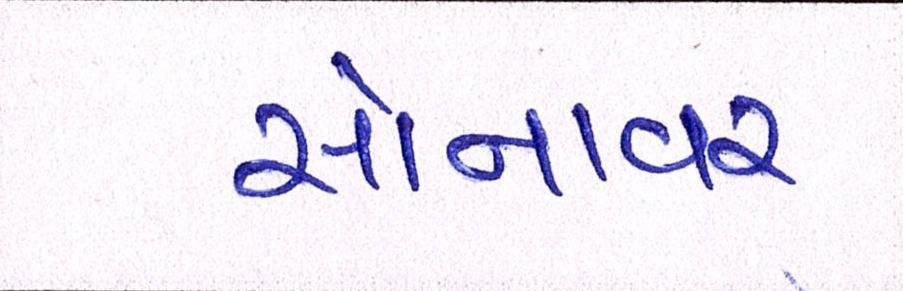 સોનાવર